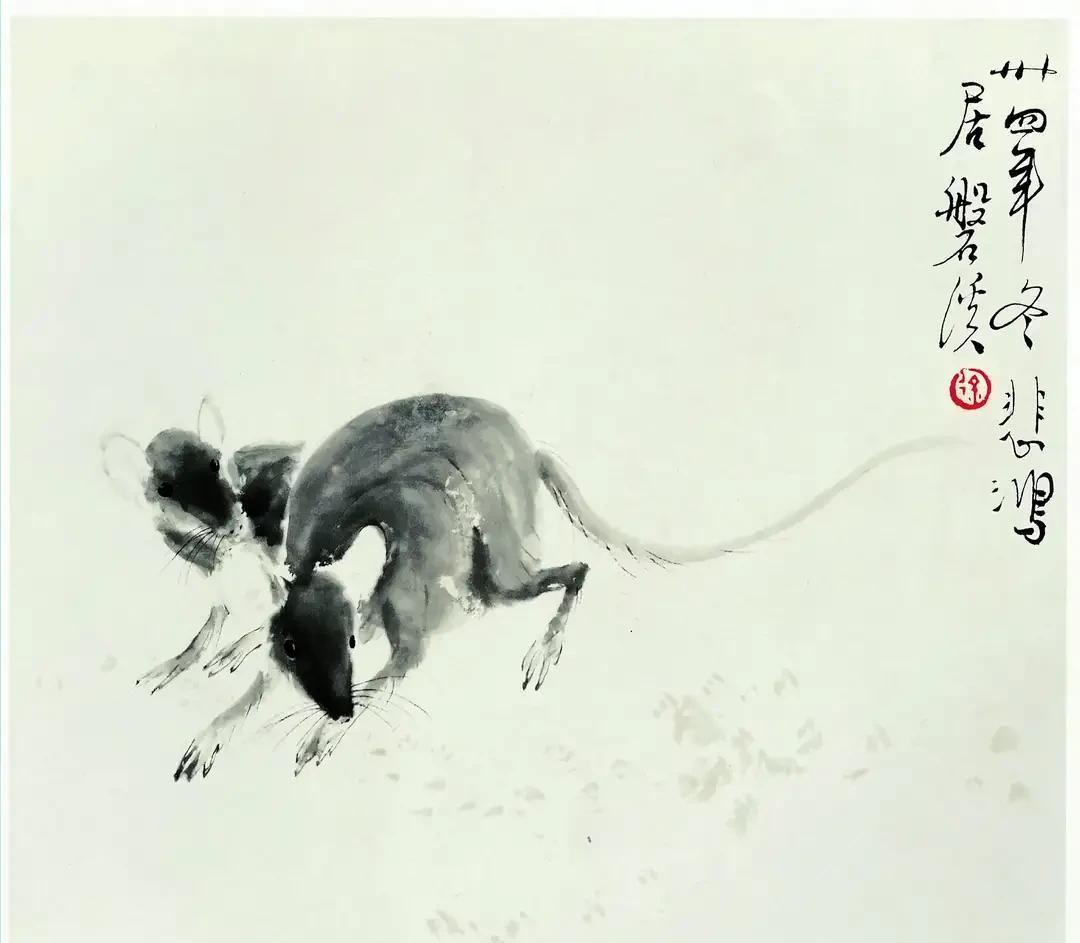 卅四年冬悲鸿
居磐溪
徐